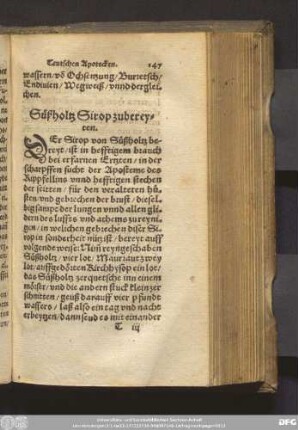 Teutschen Apotecken. 147
wassern / võ Ochsenzung / Burretsch /
Endiuien / Wegweiß / vnnd dergleichen.
chen.
Süßholtz Sirop zuberey-
ten.
DEr Sirop von Süßholtz be-
reyt / ist in hefftigem brauch
bei erfarnen Ertzten / in der
scharpffen sucht der Apostems des
Rippfellins vnnd hefftigen stechen
der seitten / für den veralteten hů-
sten vnd gebrechen der brust / diesel-
big sampt der lungen vnnd allen gli-
dern des luffts vnd athems zureyni-
gen / in welichen gebrechen diser Si-
rop in sonderheit nütz ist / bereyt auff
volgende weise: Nim reyn geschaben
Süßholtz / vier lot / Maurraut zwey
lot / auffgedörten Kirchhysop ein lot /
das Süßholtz zerquetsche inn einem
mörser / vnd die andern stuck klein zer
schnitten / geuß darauff vier pfundt
wassers / laß also ein tag vnd nacht
erbeytzen / dann seud es mit einander
T iij